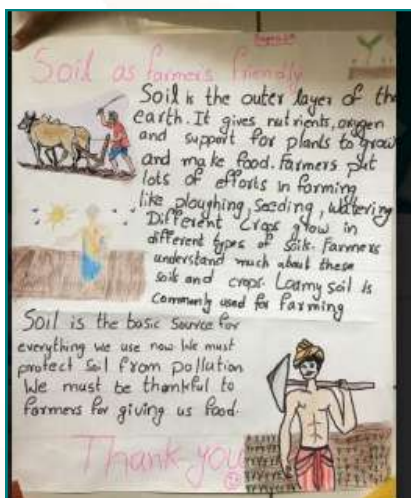 Soil as farmers friendly
Soil is the outer layer of the
earth. It gives nutrients, oxygen
and support for plants to grow
and make food. Farmers put
lots of efforts in farming
like ploughing, seeding, watering
Different Crops grow in
different types of soils. Farmers
understand much about these
soils and crops. Loamy soil is
commonly used for farming
Soil is the basic source for
everything we use now. We must
protect soil from pollution
We must be thankful to
farmers for giving us food.
Thank you